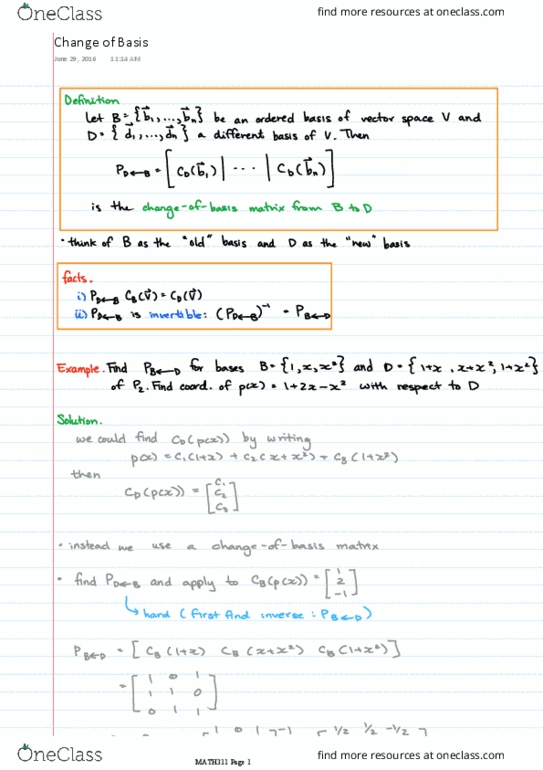 OneClass
find more resources at oneclass.com
Change of Basis
June 29, 2016 11:14 AM
Definition
Let B = {b⃗₁,...,b⃗ₙ} be an ordered basis of vector space V and
D = {d⃗₁,...,d⃗ₙ} a different basis of V. Then
P_D←B = [C_D(b⃗₁) | ··· | C_D(b⃗ₙ)]
is the change-of-basis matrix from B to D
• think of B as the "old" basis and D as the "new" basis
facts.
i) P_D←B C_B(v⃗) = C_D(v⃗)
ii) P_D←B is invertible: (P_D←B)⁻¹ = P_B←D
Example. Find P_B←D for bases B = {1, x, x²} and D = {1+x, x+x², 1+x²}
of P₂. Find coord. of p(x) = 1+2x-x² with respect to D
Solution.
we could find C_D(p(x)) by writing
p(x) = C₁(1+x) + C₂(x+x²) + C₃(1+x²)
then
C_D(p(x)) = [C₁ C₂ C₃]
• instead we use a change-of-basis matrix
• find P_D←B and apply to C_B(p(x)) = [1 2 -1]
hard (first find inverse: P_B←D)
P_B←D = [C_B(1+x) C_B(x+x²) C_B(1+x²)]
= [1 0 1
1 1 0
0 1 1]
[1 0 1]⁻¹ [1/2 1/2 -1/2]
OneClass
MATH311 Page 1
find more resources at oneclass.com